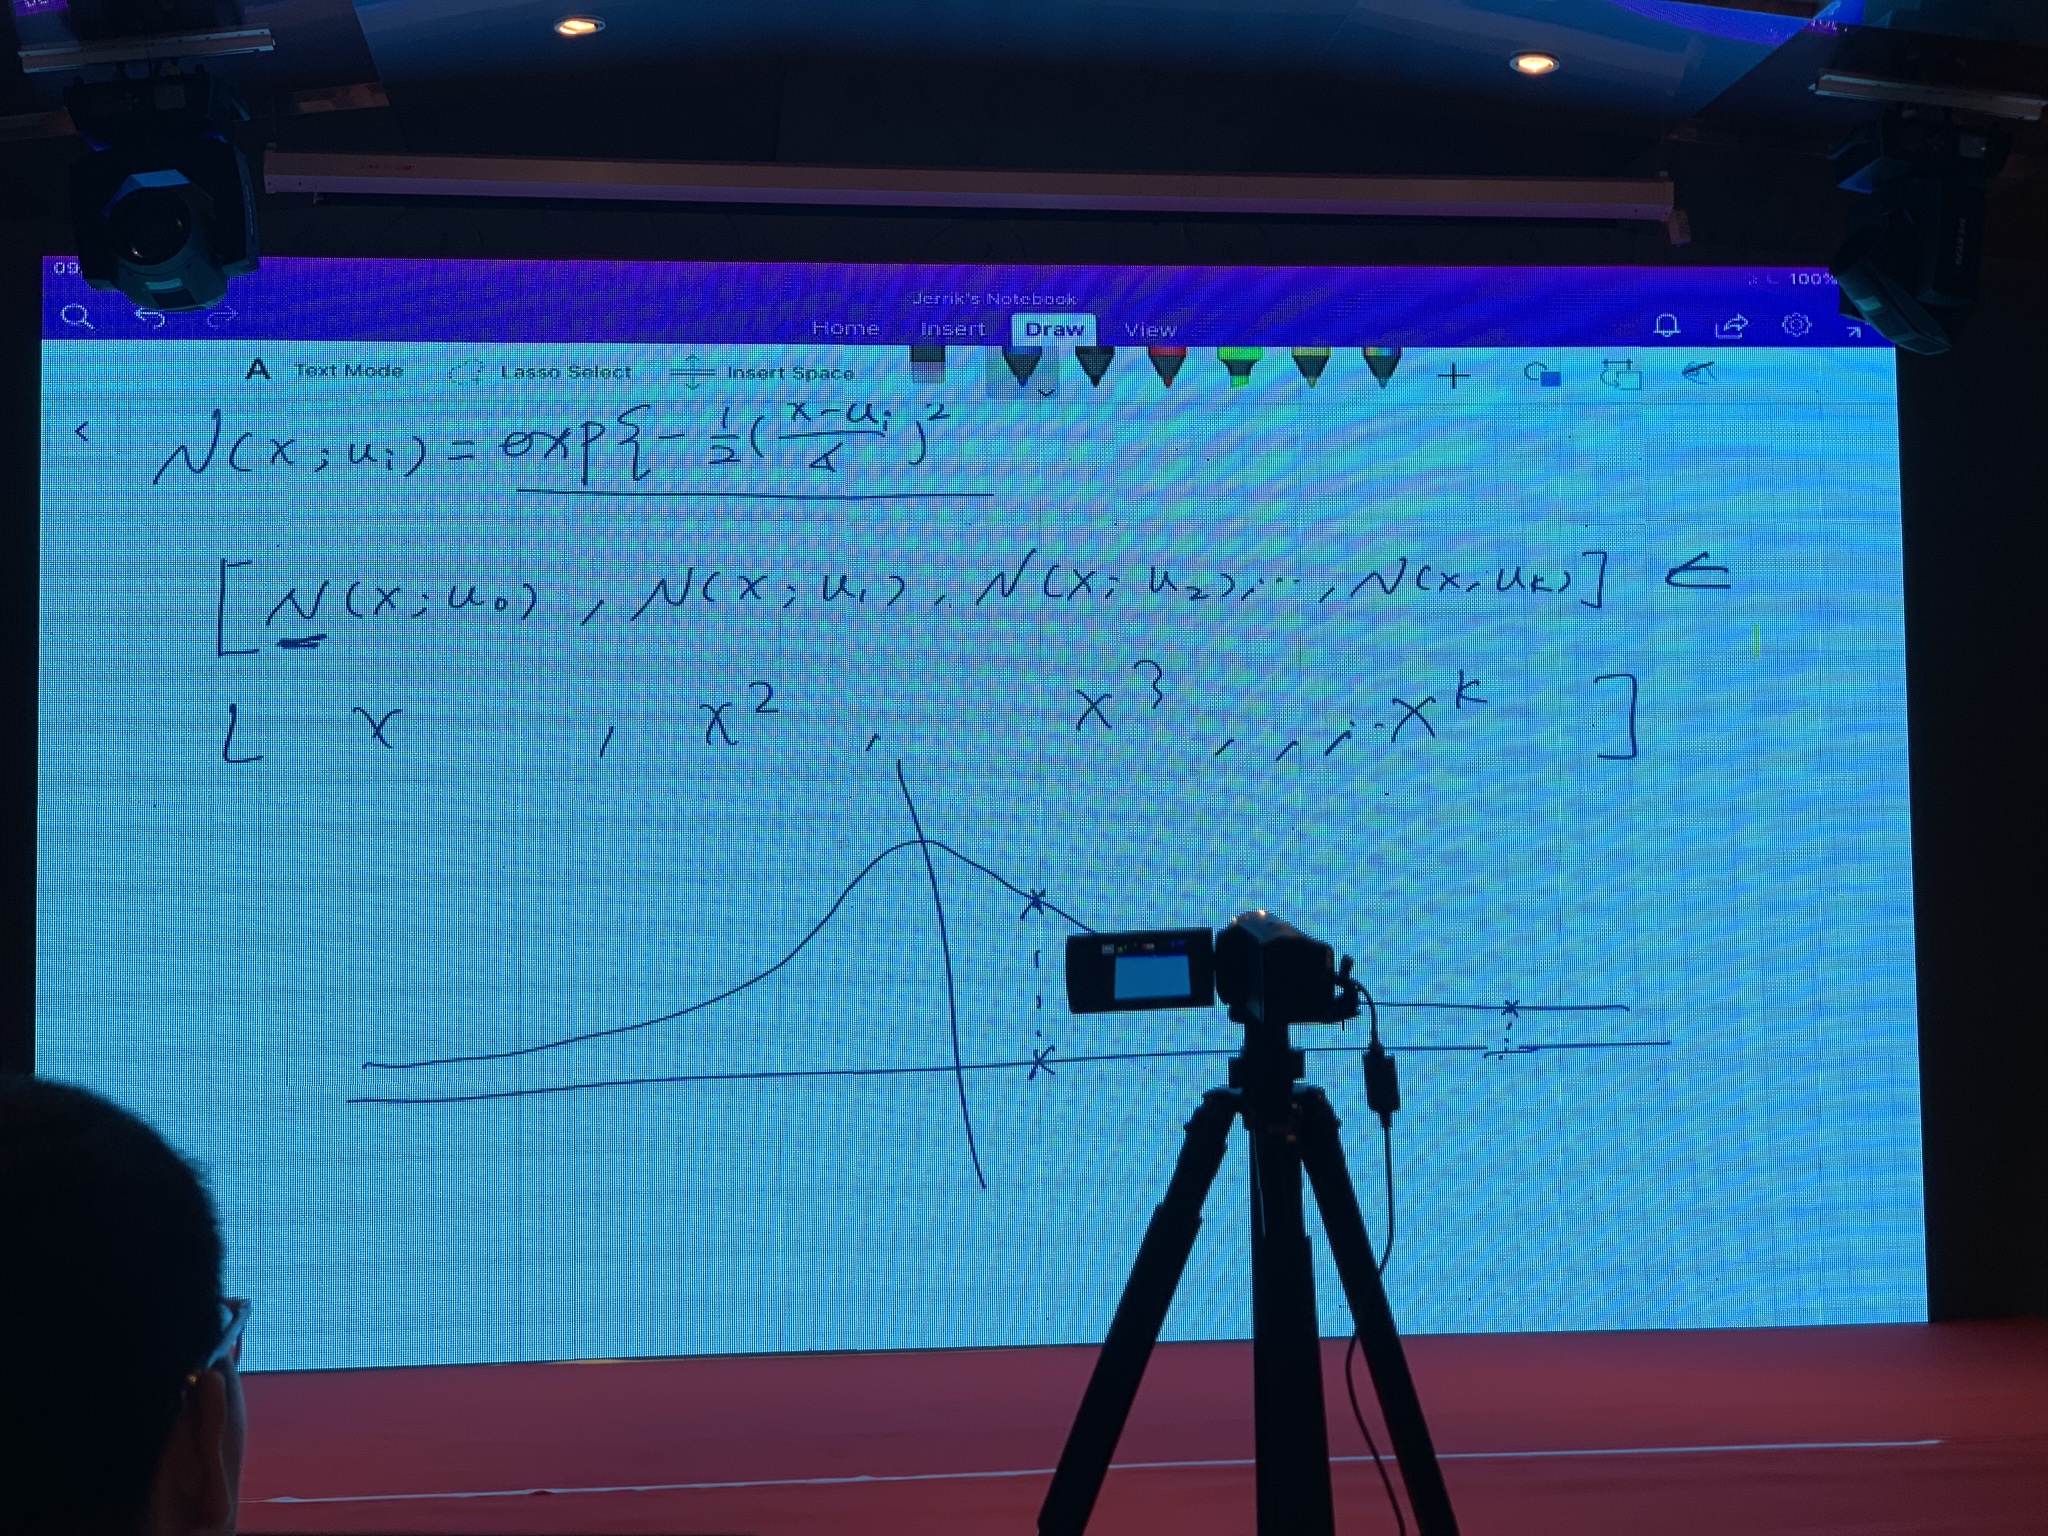 09
100%
Jerrik's Notebook
Home Insert Draw View
A Text Mode Lasso Select Insert Space
N(x; u_i) = exp{-1/2((x-u_i)/σ)^2
[N(x; u_0), N(x; u_1), N(x; u_2), ..., N(x; u_k)] <
[x, x^2, x^3, , , . x^k]